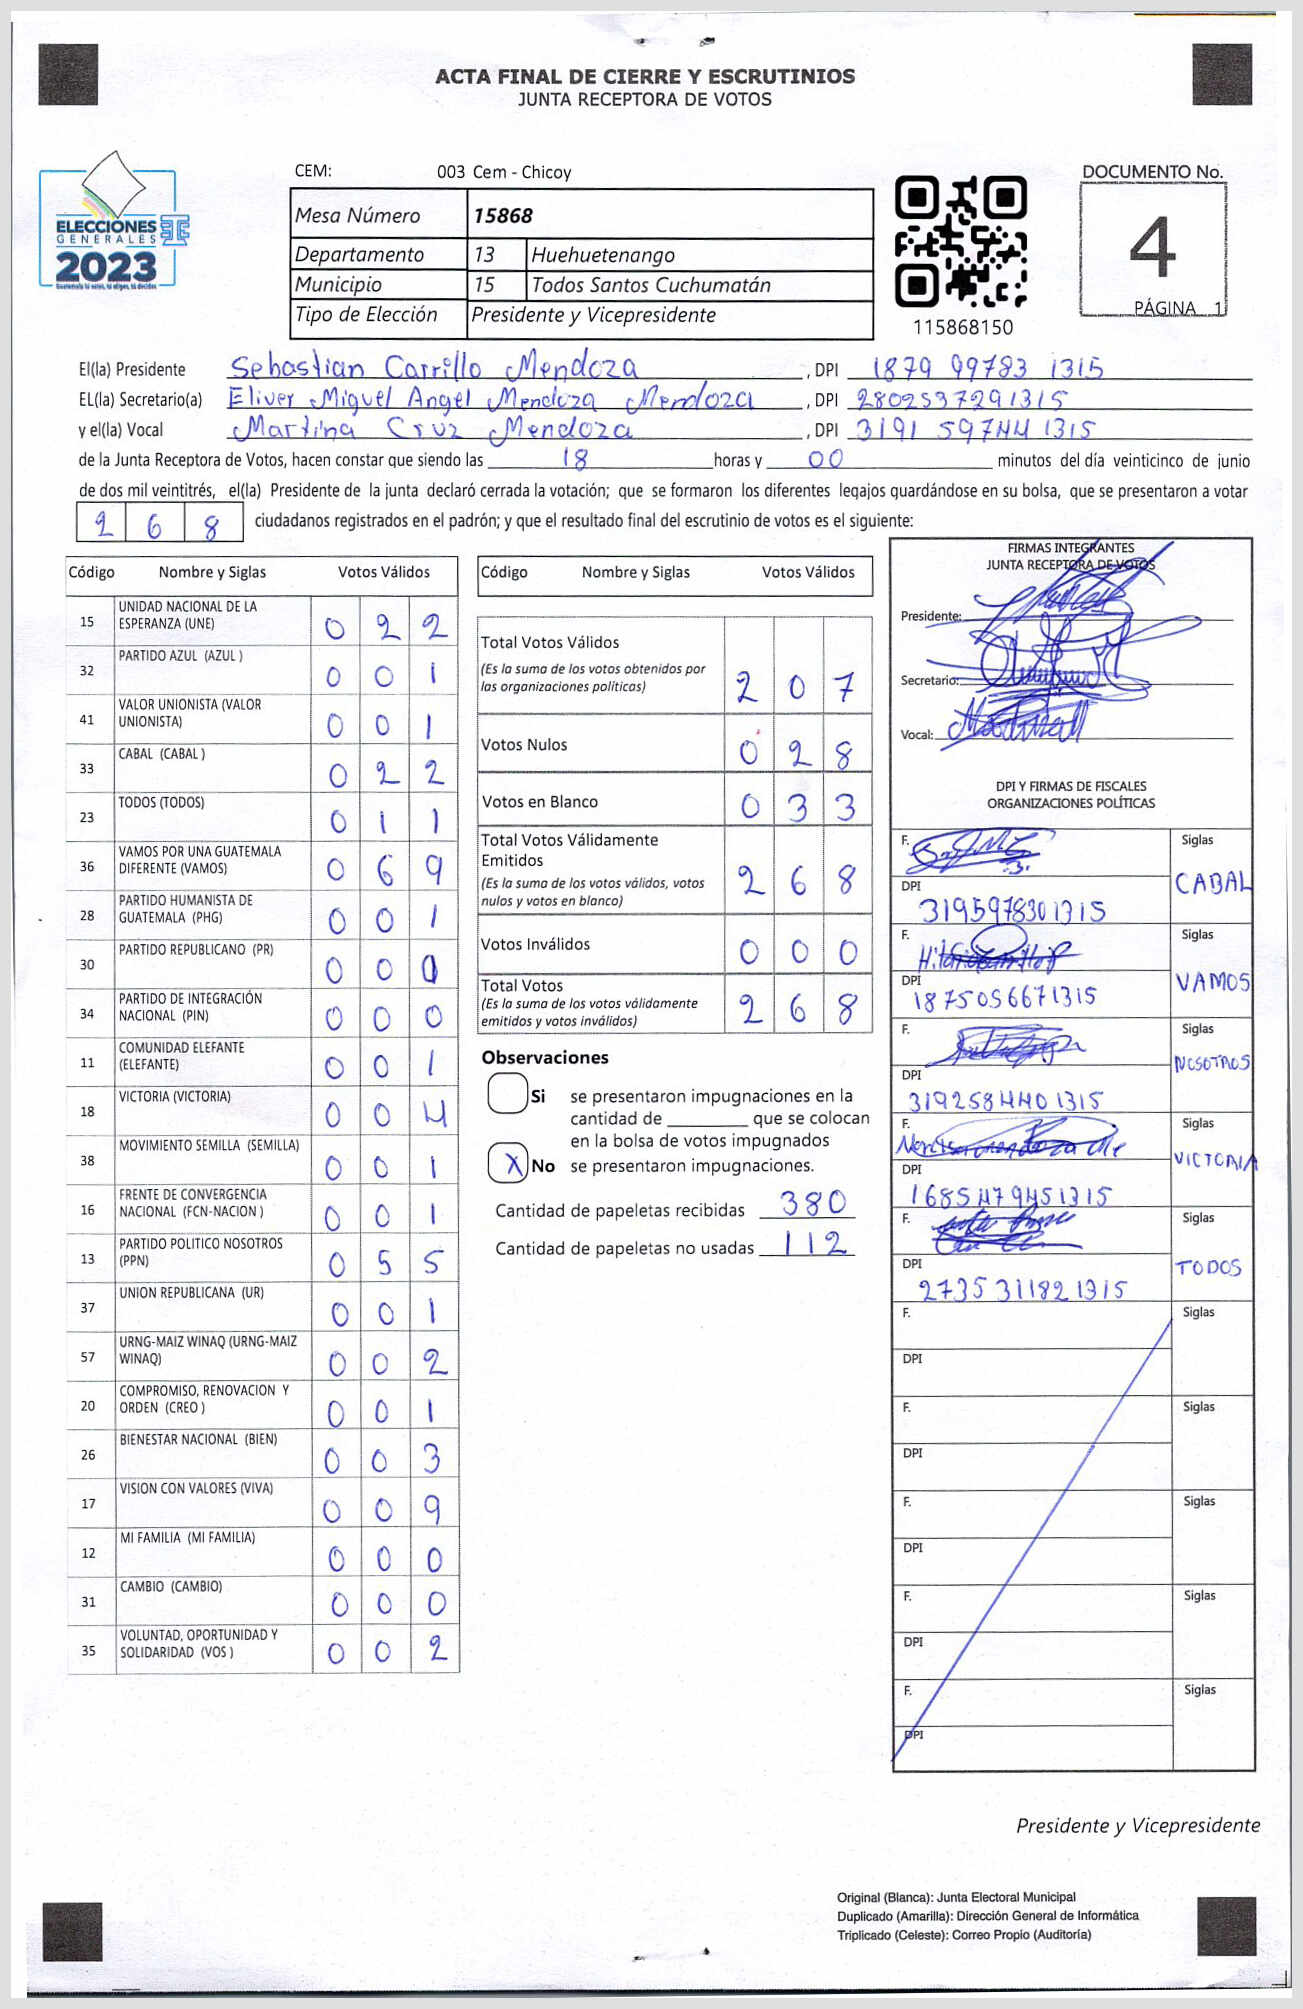 ACTA FINAL DE CIERRE Y ESCRUTINIOS
JUNTA RECEPTORA DE VOTOS
ELECCIONES
GENERALES
2023
Guatemala tú votas, tú eliges, tú decides
CEM: 003 Cem - Chicoy
Mesa Número 15868
Departamento 13 Huehuetenango
Municipio 15 Todos Santos Cuchumatán
Tipo de Elección Presidente y Vicepresidente
115868150
DOCUMENTO No.
4
PÁGINA 1
El(la) Presidente Sebastian Carrillo Mendoza , DPI 1879 99783 1315
EL(la) Secretario(a) Eliver Miguel Angel Mendoza Mendoza , DPI 2802537291315
y el(la) Vocal Martina Cruz Mendoza , DPI 3191 59744 1315
de la Junta Receptora de Votos, hacen constar que siendo las 18 horas y 00 minutos del día veinticinco de junio
de dos mil veintitrés, el(la) Presidente de la junta declaró cerrada la votación; que se formaron los diferentes legajos guardándose en su bolsa, que se presentaron a votar
2 6 8 ciudadanos registrados en el padrón; y que el resultado final del escrutinio de votos es el siguiente:
Código Nombre y Siglas Votos Válidos
15 UNIDAD NACIONAL DE LA
ESPERANZA (UNE) 0 2 2
32 PARTIDO AZUL (AZUL ) 0 0 1
41 VALOR UNIONISTA (VALOR
UNIONISTA) 0 0 1
33 CABAL (CABAL ) 0 2 2
23 TODOS (TODOS) 0 1 1
36 VAMOS POR UNA GUATEMALA
DIFERENTE (VAMOS) 0 6 9
28 PARTIDO HUMANISTA DE
GUATEMALA (PHG) 0 0 1
30 PARTIDO REPUBLICANO (PR) 0 0 0
34 PARTIDO DE INTEGRACIÓN
NACIONAL (PIN) 0 0 0
11 COMUNIDAD ELEFANTE
(ELEFANTE) 0 0 1
18 VICTORIA (VICTORIA) 0 0 4
38 MOVIMIENTO SEMILLA (SEMILLA) 0 0 1
16 FRENTE DE CONVERGENCIA
NACIONAL (FCN-NACION ) 0 0 1
13 PARTIDO POLITICO NOSOTROS
(PPN) 0 5 5
37 UNION REPUBLICANA (UR) 0 0 1
57 URNG-MAIZ WINAQ (URNG-MAIZ
WINAQ) 0 0 2
20 COMPROMISO, RENOVACION Y
ORDEN (CREO ) 0 0 1
26 BIENESTAR NACIONAL (BIEN) 0 0 3
17 VISION CON VALORES (VIVA) 0 0 9
12 MI FAMILIA (MI FAMILIA) 0 0 0
31 CAMBIO (CAMBIO) 0 0 0
35 VOLUNTAD, OPORTUNIDAD Y
SOLIDARIDAD (VOS ) 0 0 2
Código Nombre y Siglas Votos Válidos
Total Votos Válidos
(Es la suma de los votos obtenidos por
las organizaciones políticas) 2 0 7
Votos Nulos 0 2 8
Votos en Blanco 0 3 3
Total Votos Válidamente
Emitidos
(Es la suma de los votos válidos, votos
nulos y votos en blanco) 2 6 8
Votos Inválidos 0 0 0
Total Votos
(Es la suma de los votos válidamente
emitidos y votos inválidos) 2 6 8
Observaciones
Si se presentaron impugnaciones en la
cantidad de ________ que se colocan
en la bolsa de votos impugnados
X No se presentaron impugnaciones.
Cantidad de papeletas recibidas 380
Cantidad de papeletas no usadas 112
FIRMAS INTEGRANTES
JUNTA RECEPTORA DE VOTOS
Presidente:
Secretario:
Vocal:
DPI Y FIRMAS DE FISCALES
ORGANIZACIONES POLÍTICAS
F. Siglas
CABAL
DPI
3195978301315
F. Siglas
VAMOS
DPI
1875056671315
F. Siglas
NOSOTROS
DPI
3192584401315
F. Siglas
VICTORIA
DPI
1685479451315
F. Siglas
TODOS
DPI
2735311821315
F. Siglas
DPI
F. Siglas
DPI
F. Siglas
DPI
F. Siglas
DPI
F. Siglas
DPI
Presidente y Vicepresidente
Original (Blanca): Junta Electoral Municipal
Duplicado (Amarilla): Dirección General de Informática
Triplicado (Celeste): Correo Propio (Auditoría)